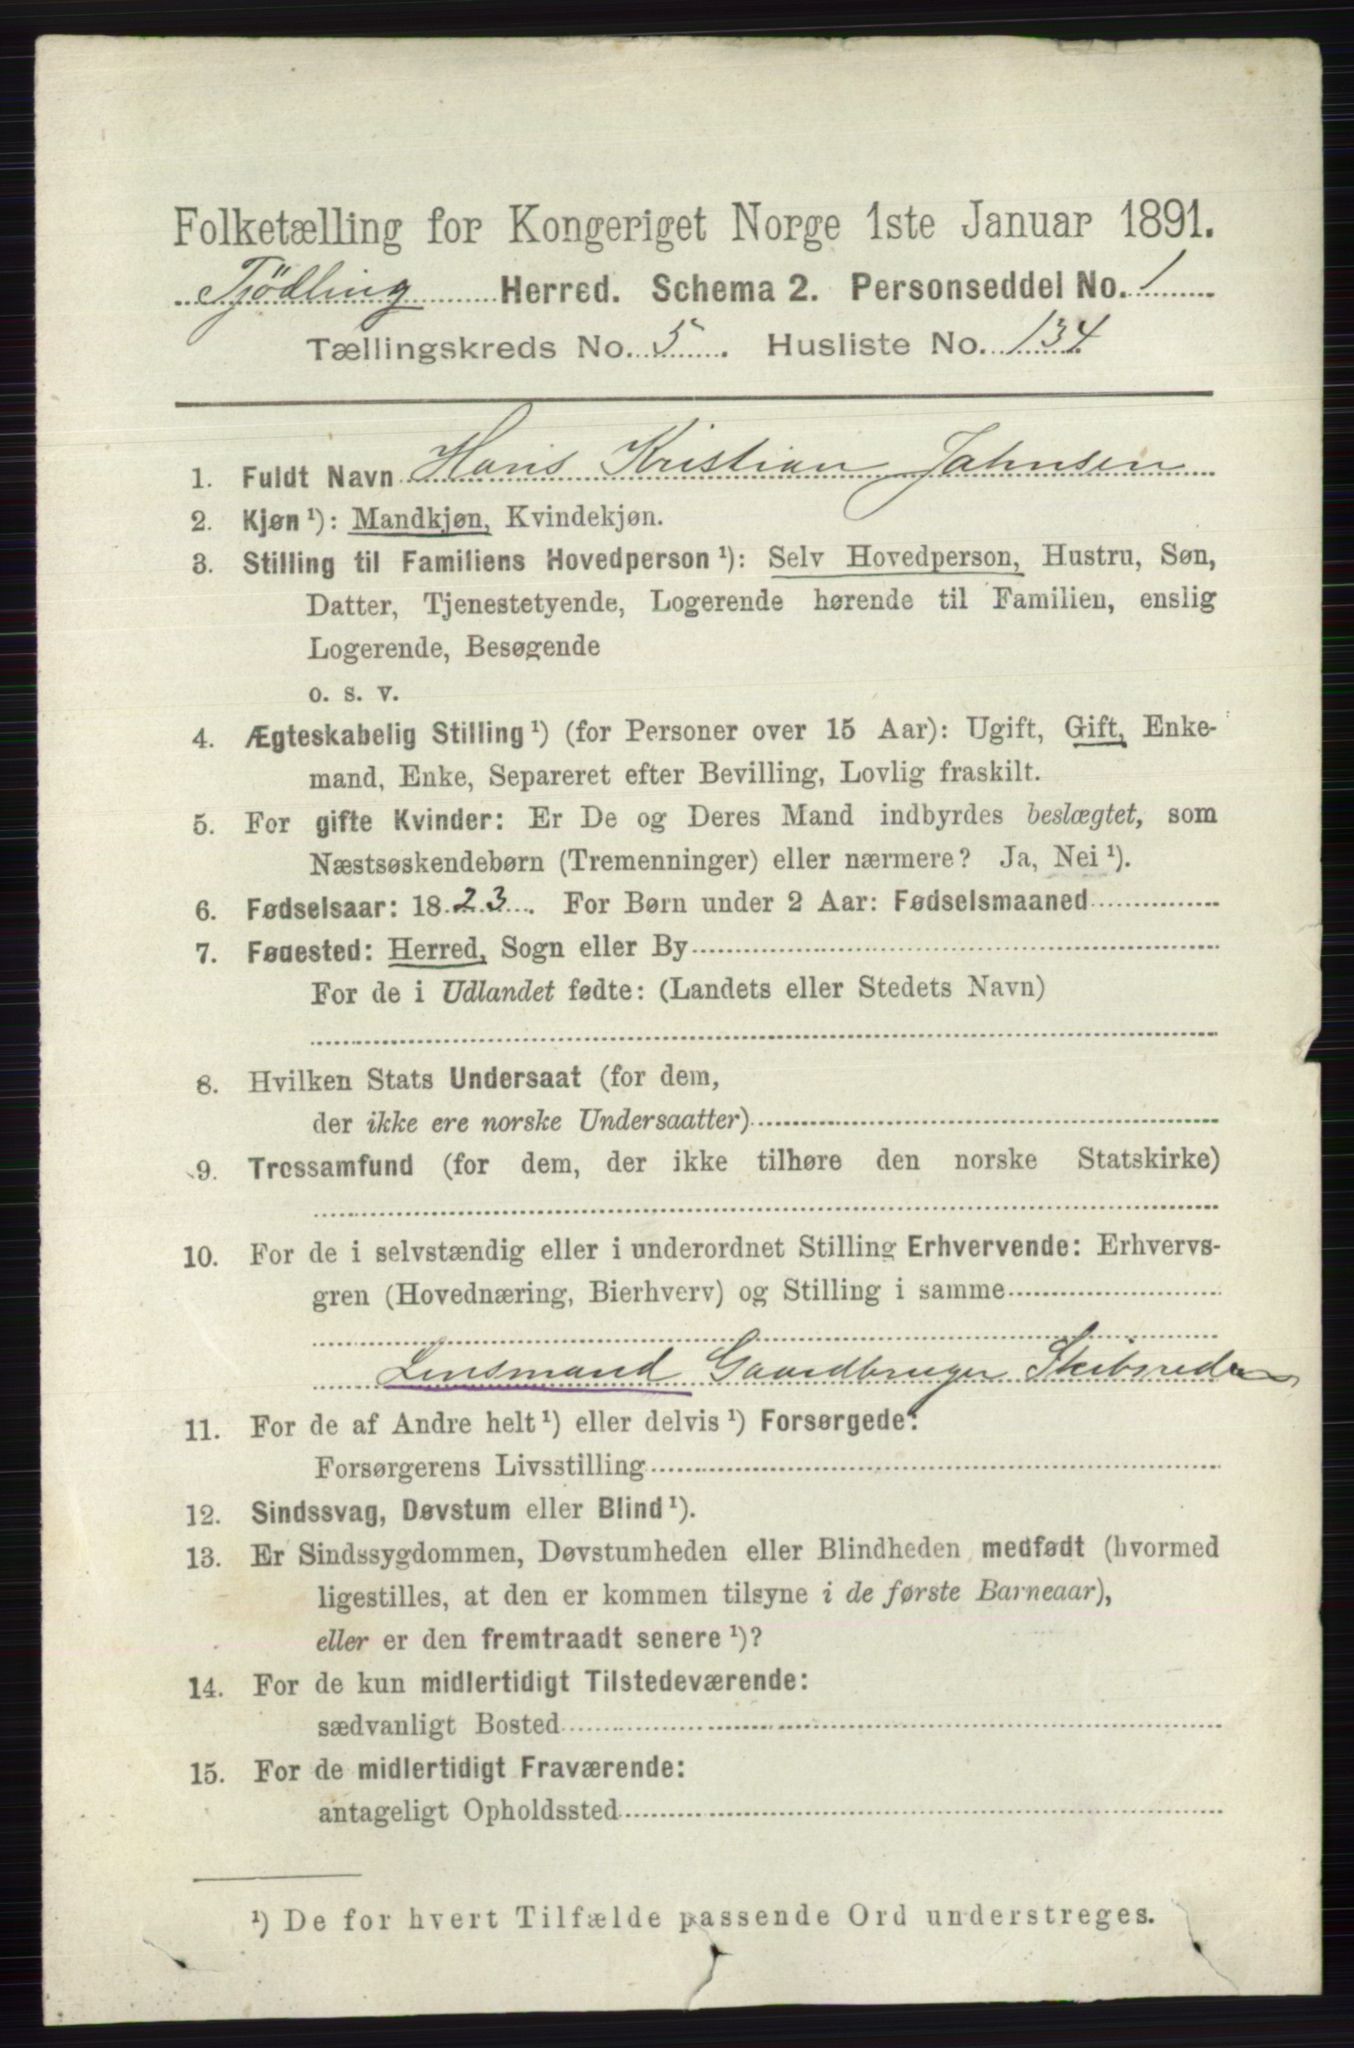 Folketælling for Kongeriget Norge 1ste Januar 1891.
Tjödling Herred. Schema 2. Personseddel No. 1
Tællingskreds No. 5. Husliste No. 134
1. Fuldt Navn Hans Kristian Jahnsen
2. Kjøn ¹): Mandkjøn, Kvindekjøn.
3. Stilling til Familiens Hovedperson ¹): Selv Hovedperson, Hustru, Søn,
Datter, Tjenestetyende, Logerende hørende til Familien, enslig
Logerende, Besøgende
o. s. v.
4. Ægteskabelig Stilling ¹) (for Personer over 15 Aar): Ugift, Gift, Enke-
mand, Enke, Separeret efter Bevilling, Lovlig fraskilt.
5. For gifte Kvinder: Er De og Deres Mand indbyrdes beslægtet, som
Næstsøskendebørn (Tremenninger) eller nærmere? Ja, Nei ¹).
6. Fødselsaar: 1823. For Børn under 2 Aar: Fødselsmaaned
7. Føuested: Herred, Sogn eller By
For de i Udlandet fødte: (Landets eller Stedets Navn)
8. Hvilken Stats Undersaat (for dem,
der ikke ere norske Undersaatter)
9. Trossamfund (for dem, der ikke tilhøre den norske Statskirke)
10. For de i selvstændig eller i underordnet Stilling Erhvervende: Erhvervs-
gren (Hovednæring, Bierhverv) og Stilling i samme
Lensmand Gaardbruger Skibsreder
11. For de af Andre helt ¹) eller delvis ¹) Forsørgede:
Forsørgerens Livsstilling
12. Sindssvag, Døvstum eller Blind ¹).
13. Er Sindssygdommen, Døvstumheden eller Blindheden medfødt (hvormed
ligestilles, at den er kommen tilsyne i de første Barneaar),
eller er den fremtraadt senere ¹)?
14. For de kun midlertidigt Tilstedeværende:
sædvanligt Bosted
15. For de midlertidigt Fraværende:
antageligt Opholdssted
¹) De for hvert Tilfælde passende Ord understreges.